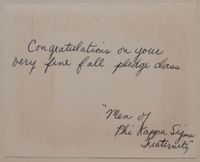 Congratulations on your
very fine fall pledge class
"Men of
Phi Kappa Sigma
Fraternity"